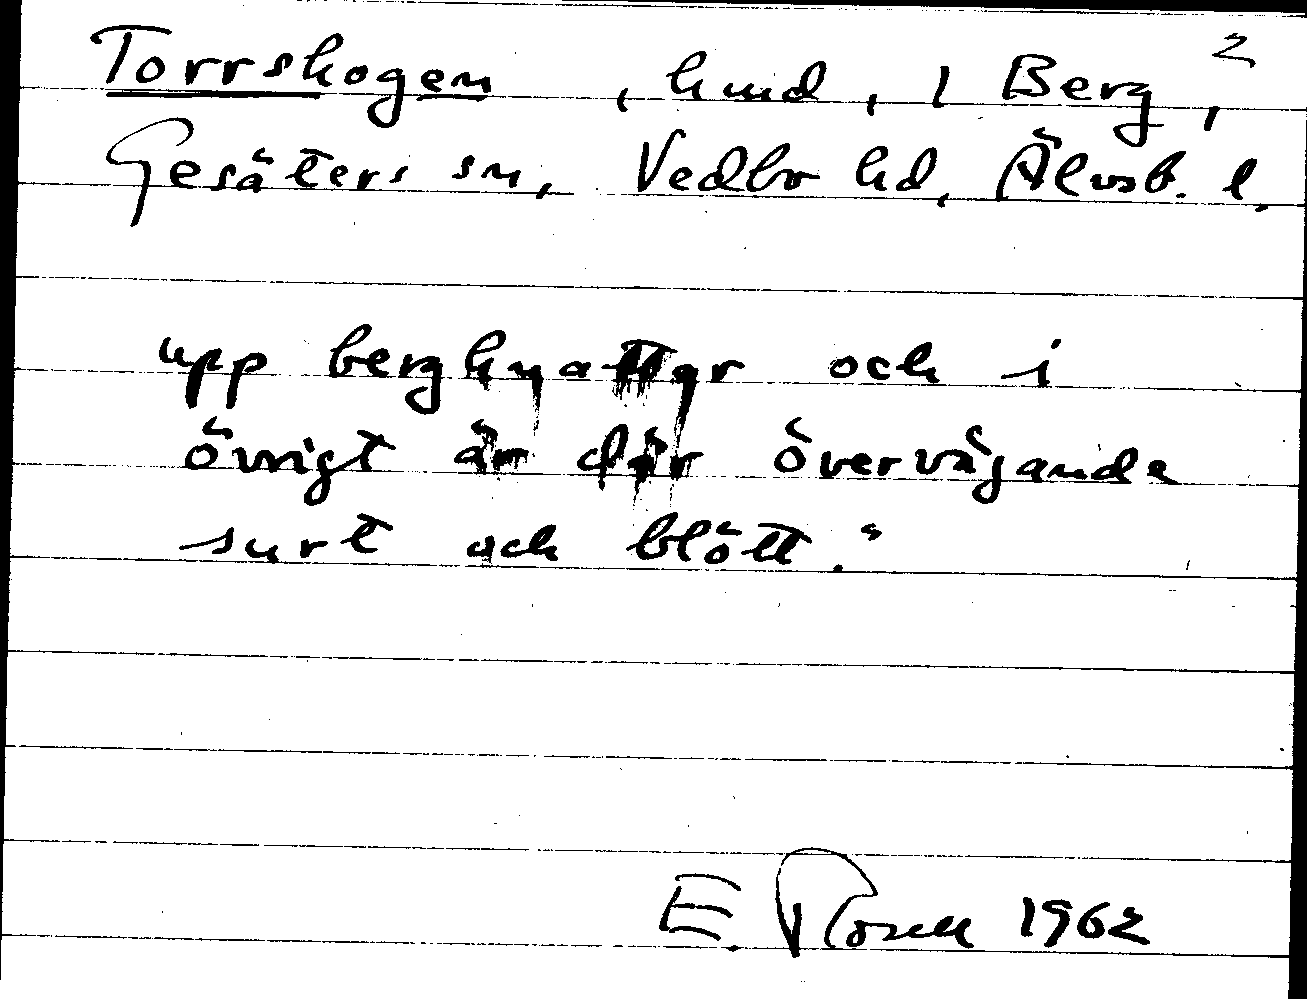 2
Torrskogen, hmd, 1 Berg,
Gesäters sn, Vedbo hd, Älvsb. l.
upp bergknattar och i
övrigt är där övervägande
surt och blött."
E. Rosell 1962